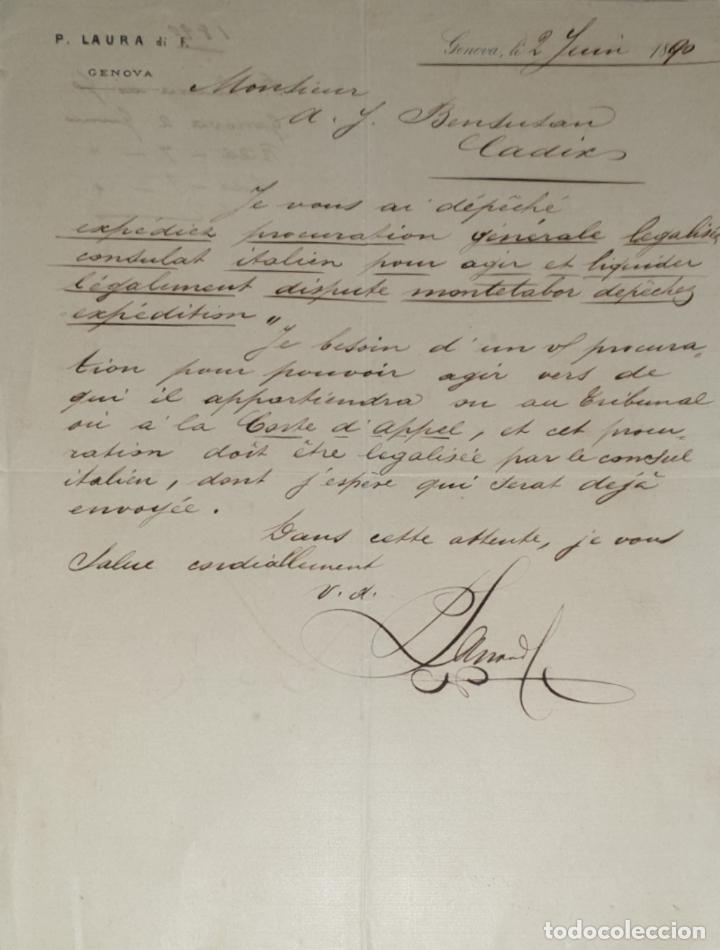 P. LAURA di F.
GENOVA
Genova, li 2 Juin 1890
Monsieur
A. J. Bensusan
Cadix
Je vous ai dépêché
expédiez procuration générale legalisée
consulat italien pour agir et liquider
légalement dispute montetabor depêchez
expédition "
Je besoin d'un vf procura-
tion pour pouvoir agir vers de
qui il appartiendra ou au Tribunal
où à la Corte d'Appel, et cet procu-
ration doît être legalisée par le consul
italien, dont j'espère qui serat dejà
envoyée.
Dans cette attente, je vous
Salue cordiallement
v. d.
todocoleccion